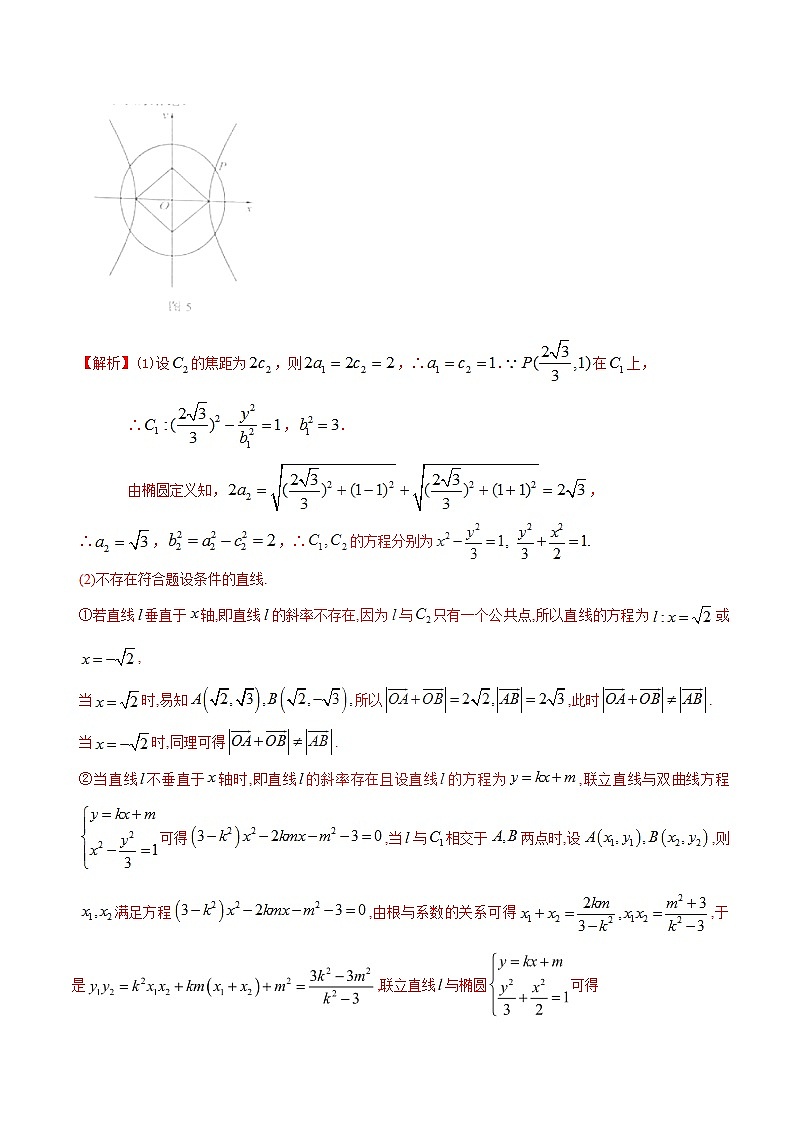 y
P
O
x
图 5
【解析】(1)设 C₂ 的焦距为 2c₂，则 2a₁ = 2c₂ = 2，∴ a₁ = c₂ = 1. ∵ P(2√3/3, 1) 在 C₁ 上，
∴ C₁ : (2√3/3)² − y²/b₁² = 1，b₁² = 3.
由椭圆定义知，2a₂ = √((2√3/3)² + (1−1)²) + √((2√3/3)² + (1+1)²) = 2√3，
∴ a₂ = √3，b₂² = a₂² − c₂² = 2，∴ C₁, C₂ 的方程分别为 x² − y²/3 = 1, y²/3 + x²/2 = 1.
(2)不存在符合题设条件的直线.
①若直线 l 垂直于 x 轴,即直线 l 的斜率不存在,因为 l 与 C₂ 只有一个公共点,所以直线的方程为 l : x = √2 或
x = −√2 ,
当 x = √2 时,易知 A(√2, √3), B(√2, −√3), 所以 |OA + OB| = 2√2, |AB| = 2√3 ,此时 |OA + OB| ≠ |AB| .
当 x = −√2 时,同理可得 |OA + OB| ≠ |AB| .
②当直线 l 不垂直于 x 轴时,即直线 l 的斜率存在且设直线 l 的方程为 y = kx + m ,联立直线与双曲线方程
{y = kx + m, x² − y²/3 = 1 可得 (3 − k²)x² − 2kmx − m² − 3 = 0 ,当 l 与 C₁ 相交于 A, B 两点时,设 A(x₁, y₁), B(x₂, y₂) ,则
x₁, x₂ 满足方程 (3 − k²)x² − 2kmx − m² − 3 = 0 ,由根与系数的关系可得 x₁ + x₂ = 2km/(3 − k²), x₁x₂ = (m² + 3)/(k² − 3) ,于
是 y₁y₂ = k²x₁x₂ + km(x₁ + x₂) + m² = (3k² − 3m²)/(k² − 3) ,联立直线 l 与椭圆 {y = kx + m, y²/3 + x²/2 = 1 可得